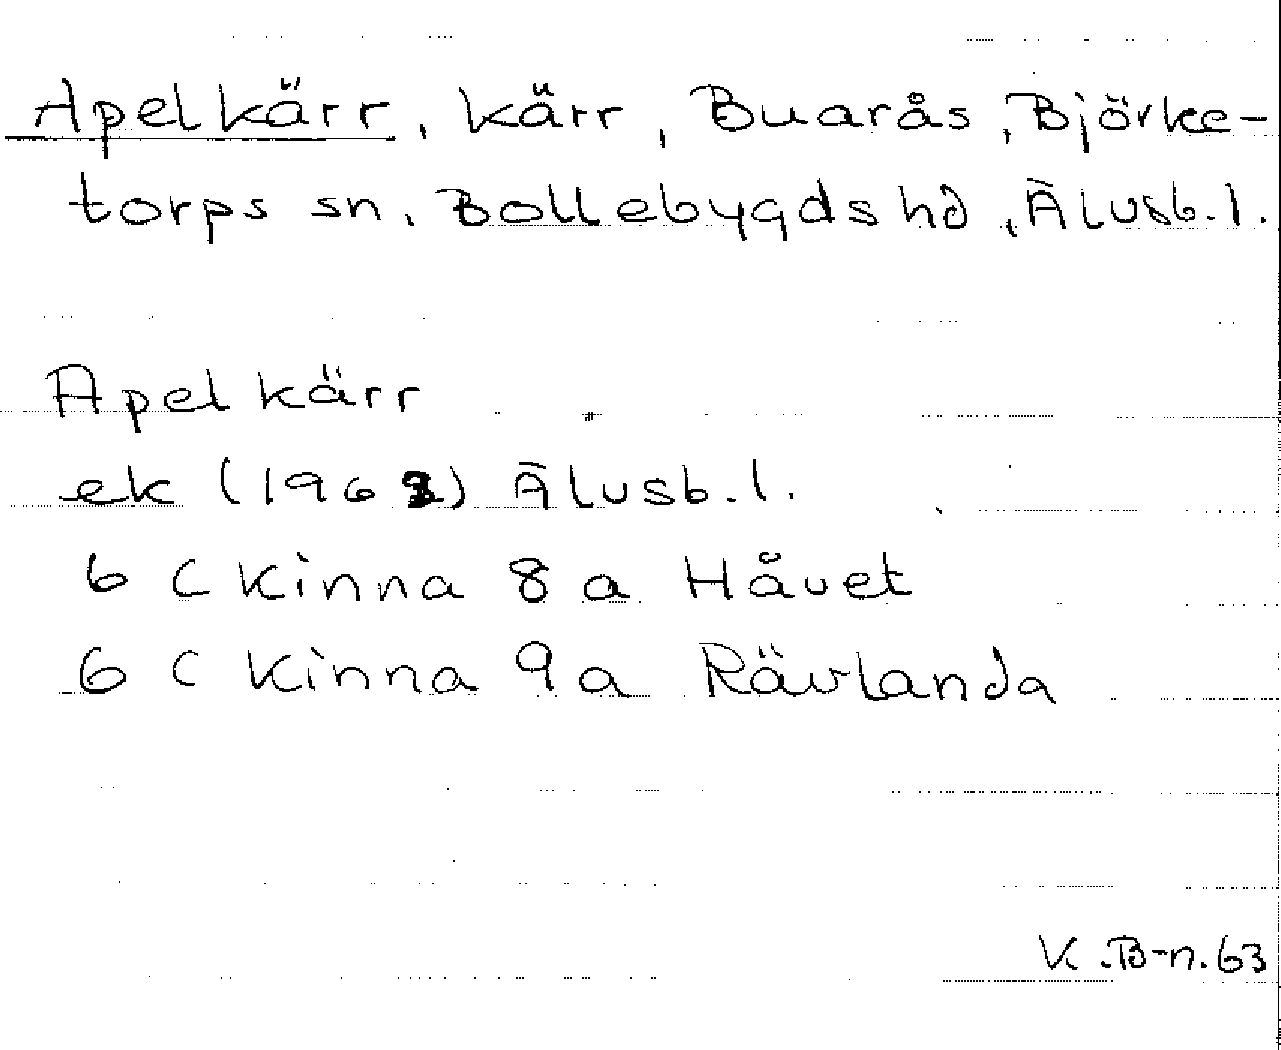 Apelkärr, kärr, Buarås, Björke-
torps sn, Bollebygds hd, Älvsb. l.
Apelkärr
ek () Älvsb. l.
6 C Kinna 8 a Håvet
6 C Kinna 9 a Rävlanda
K. B-n. 63